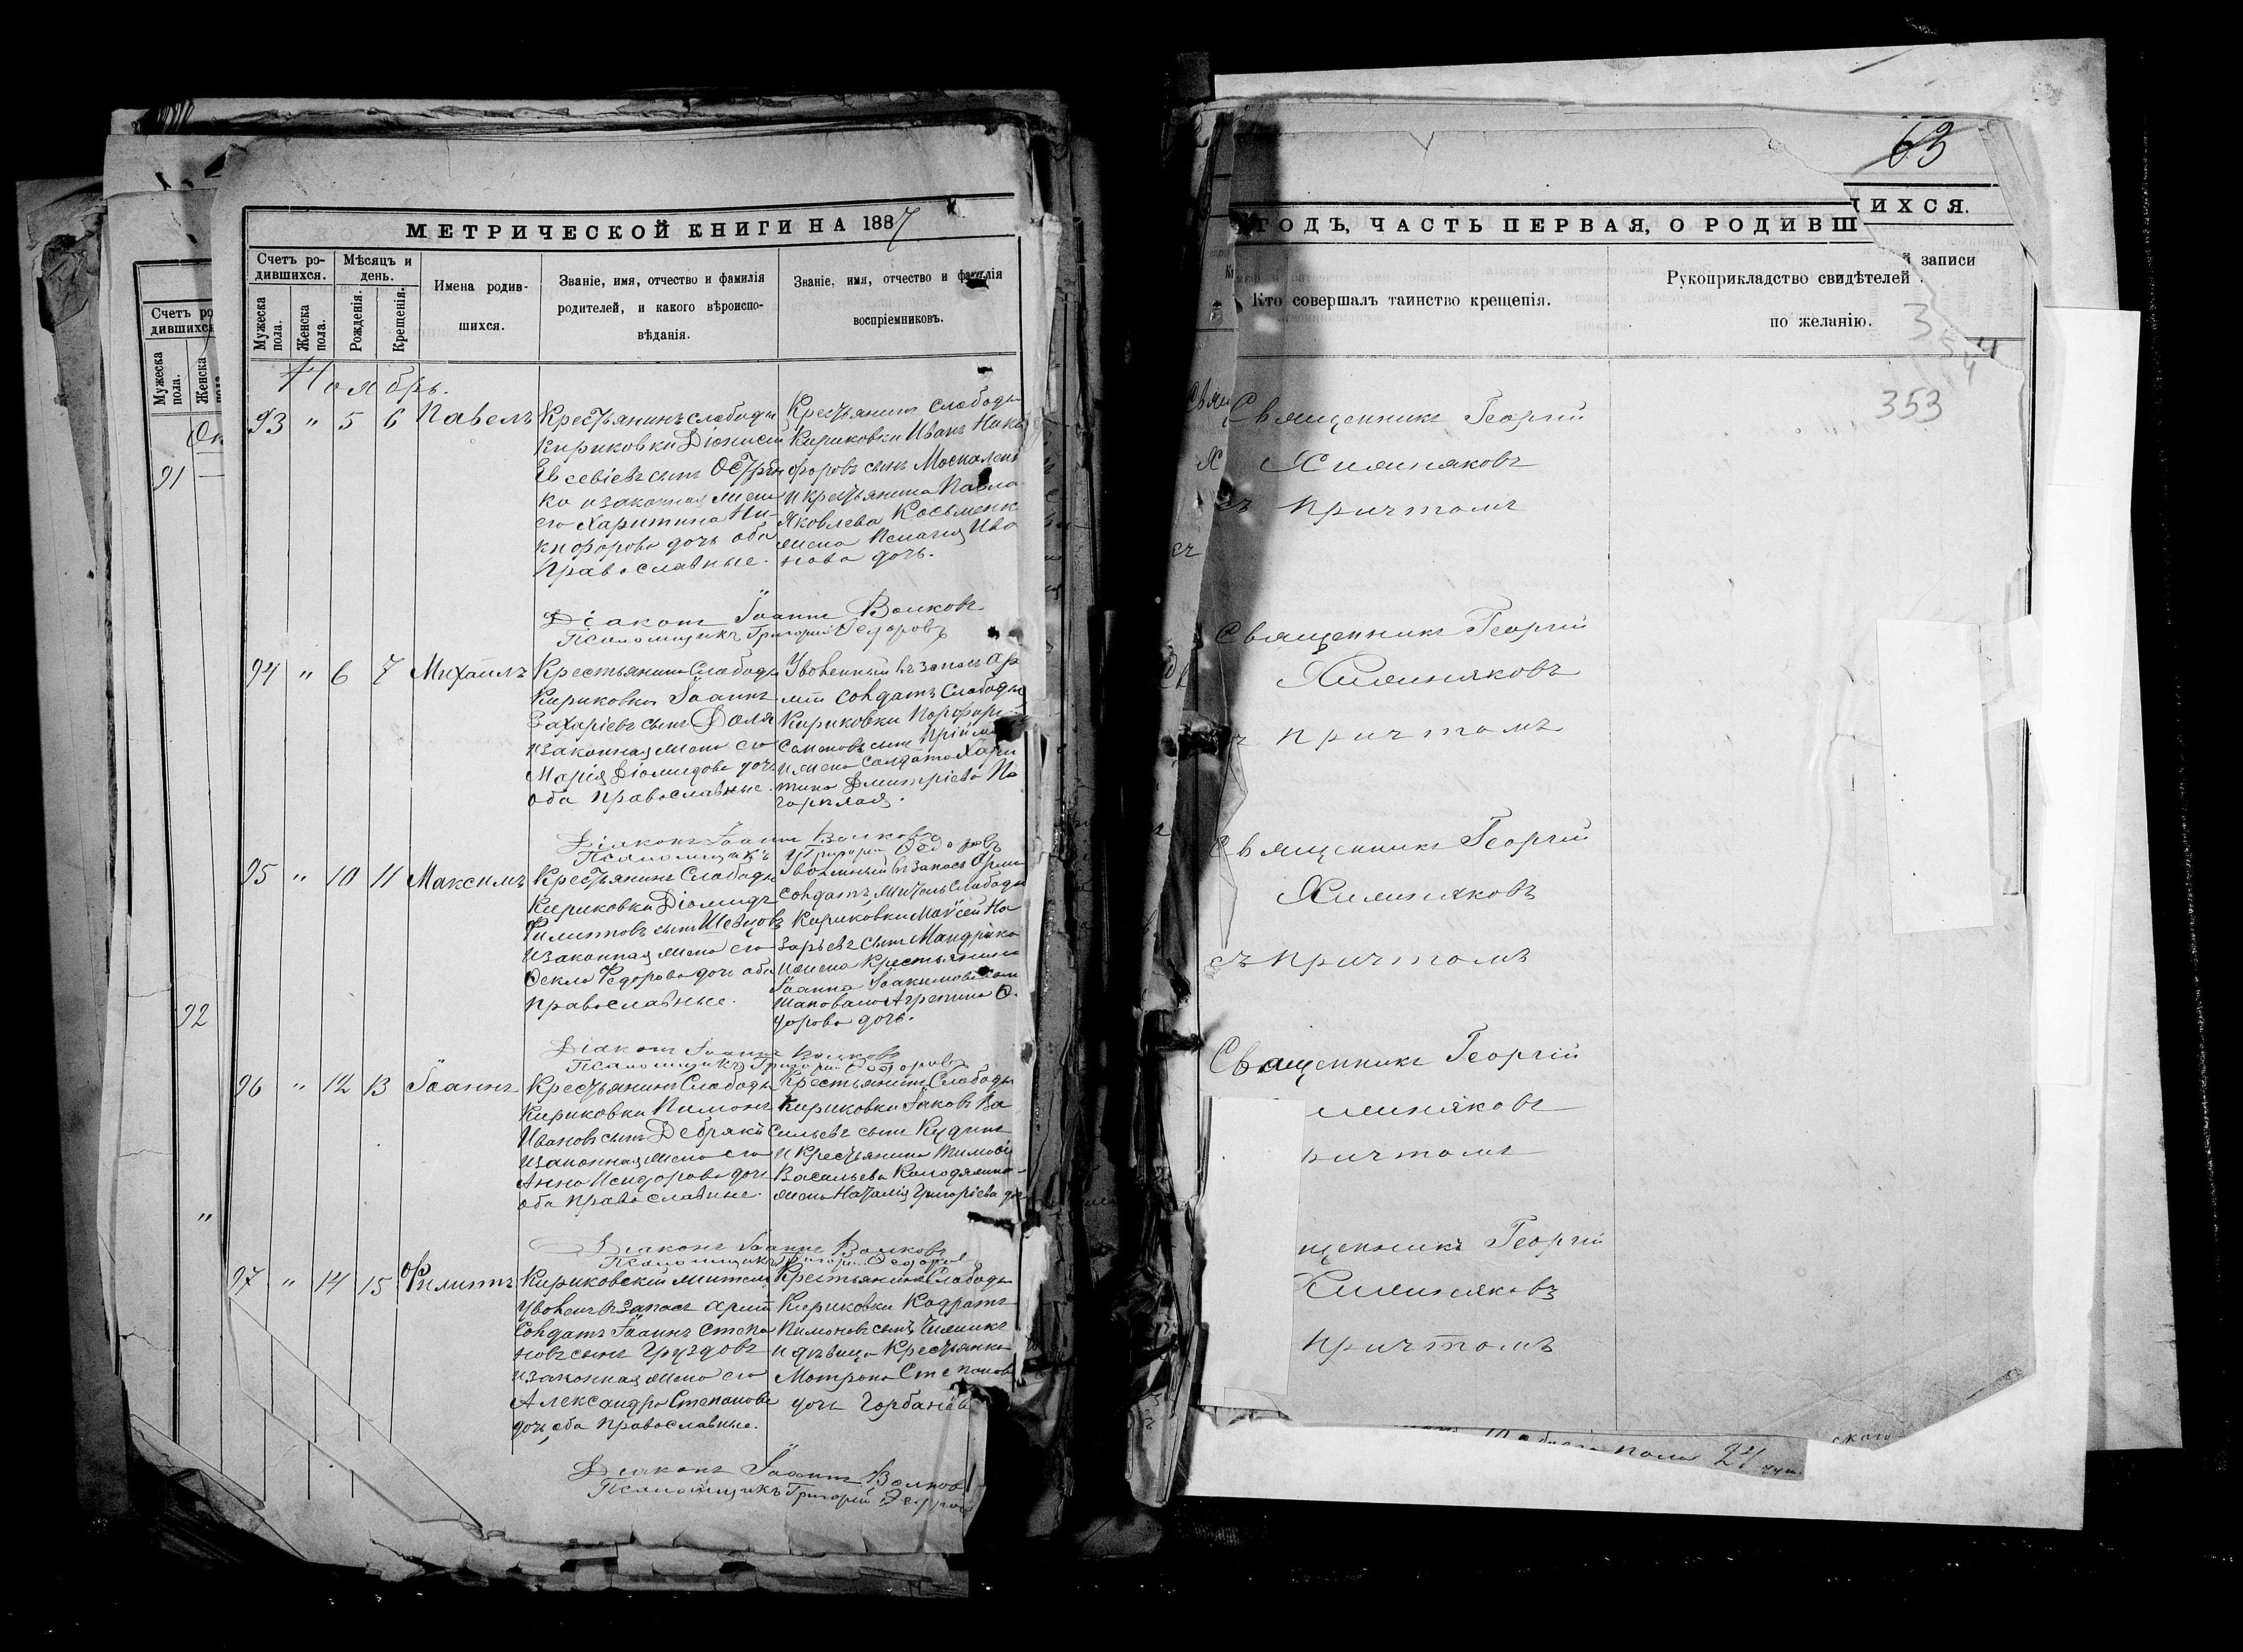 МЕТРИЧЕСКОЙ КНИГИ НА 1887
Счетъ ро-
дившихся.
Мѣсяцъ и
день.
Мужеска
пола.
Женска
пола.
Рожденія.
Крещенія.
Имена родив-
шихся.
Званіе, имя, отчество и фамилія
родителей, и какого вѣроиспо-
вѣданія.
Званіе, имя, отчество и фамилія
воспріемниковъ.
Счетъ ро
дившихся
Мужеска
пола.
Женска
91
92
"
Ноябрь.
93 " 5 6 Павелъ
Крестьянинъ слободы
Кириковки Діонисій
Евсевіевъ сынъ
ко и законная жена
его Харитина Ни-
кифорова дочь оба
Православные.
Крестьянинъ Слободы
Кириковки Иванъ Ники
форовъ сынъ Москален
и крестьянина Павла
Яковлева Косьменк
жена Пелагія Ива
нова дочь.
Діаконъ Іоаннъ Волковъ
Псаломщикъ Григорій Ѳедоровъ
94 " 6 7 Михаилъ
Крестьянинъ Слободы
Кириковки Іоаннъ
Захаріевъ сынъ Доля
и законная жена его
Марія Діомидова дочь
оба Православные.
Уволенный въ запасъ ар
міи солдатъ Слободы
Кириковки Порфири
Семеновъ сынъ
и жена солдата Хари
тина Дмитріева По
горѣлая.
Діаконъ Іоаннъ Волковъ
Псаломщикъ Григорій Ѳедоровъ
95 " 10 11 Максимъ
Крестьянинъ Слободы
Кириковки Діомидъ
Филипповъ сынъ Шевцовъ
и законная жена его
Ѳекла Федорова дочь оба
православные.
Уволенный въ запасъ Арміи
солдатъ, житель Слободы
Кириковки Моѵсей На
зарьевъ сынъ Мандрыка
и жена Крестьянина
Іоанна Іоакимова
Шаповала Агрепина Ѳ
дорова дочь.
Діаконъ Іоаннъ Волковъ
Псаломщикъ Григорій Ѳедоровъ
96 " 12 13 Іоаннъ
Крестьянинъ Слободы
Кириковки Пимонъ
Ивановъ сынъ
и законная жена его
Анна Исидорова дочь
оба православные.
Крестьянинъ Слободы
Кириковки Іаковъ Ва
сильевъ сынъ Кудинъ
и Крестьянина Тимоѳѣ
Васильева
жена Наталія Григоріева до
Діаконъ Іоаннъ Волковъ
Псаломщикъ Григорій Ѳедоров
97 " 14 15 Филиппъ
Кириковскій житель
уволенъ въ запасъ арміи
Солдатъ Іоаннъ Степа
новъ сынъ Груздовъ
и законная жена его
Александра Степанова
дочь, оба Православные.
Крестьянинъ Слободы
Кириковки Кодратъ
Пимоновъ сынъ
и дѣвица Крестьянка
Матрона Степанова
дочь
Діаконъ Іоаннъ Волков
Псаломщикъ Григорій Ѳедоров
63
ГОДЪ, ЧАСТЬ ПЕРВАЯ, О РОДИВШ
ИХСЯ.
Кто совершалъ таинство крещенія.
й записи
Рукоприкладство свидѣтелей
по желанію.
354
353
Священникъ Георгій
Хижняковъ
съ Причтомъ
Священникъ Георгій
Хижняковъ
Причтомъ
Священникъ Георгій
Хижняковъ
съ Причтомъ
Священникъ Георгій
жняковъ
ричтомъ
щенникъ Георгій
Хижняковъ
Причтомъ
пола 24
ского